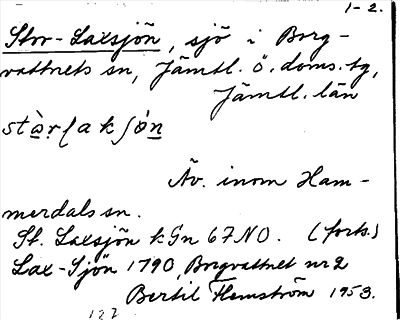 1-2.
Stor-Laxsjön, sjö i Borg-
vattnets sn, Jämtl. ö. doms. tg,
Jämtl. län
Äv. inom Ham-
merdals sn.
St. Laxsjön kGn 67NO. (forts.)
Lax-Sjön 1790, Borgvattnet nr 2
Bertil Flemström 1953.